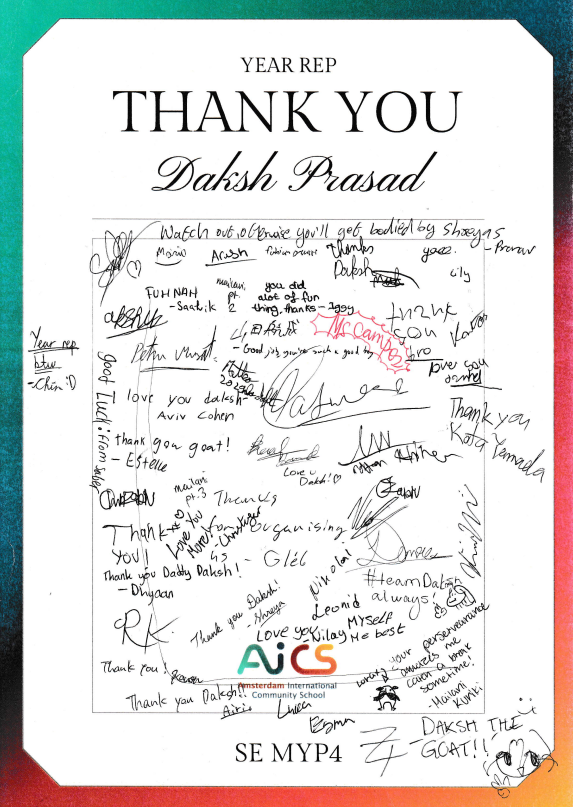 YEAR REP
THANK YOU
Daksh Prasad
Watch out, otherwise you'll get bodied by Shreyas
- Pranav
Arush
Thanks
Daksh
yaaz.
Lily
FUHNAH
- Saatvik
mailani
pt.
2
you did
alot of fun
thing, thanks - Iggy
thank
you
bro
Mc campos
- Good job, you're such a good boy
Year rep
btw
- Chin :D
Good Luck! From Saber
love you
daniel
I love you daksh
Aviv Cohen
Thank you
Kota Yamada
thank you goat!
- Estelle
Love u
Daksh! ♡
mailani
pt.3
Thanks
for organising
Thank
you!
Love You
More!
- Christopher
- Gleb
Thank you Daddy Daksh!
- Dhyaan
Nikolai
#teamDaksh
always!
Thank you Daksh!
- Shreya
Leonid
RK.
Love you
- Nilay
MYSELF
Me best
your perseverance
amazes me
catch a break
sometime!
- Mailani
Kuriki
Thank you!
AICS
Amsterdam International
Community School
Thank you Daksh!!
Airi
Luca
Esma
- DAKSH THE
GOAT!!
SE MYP4